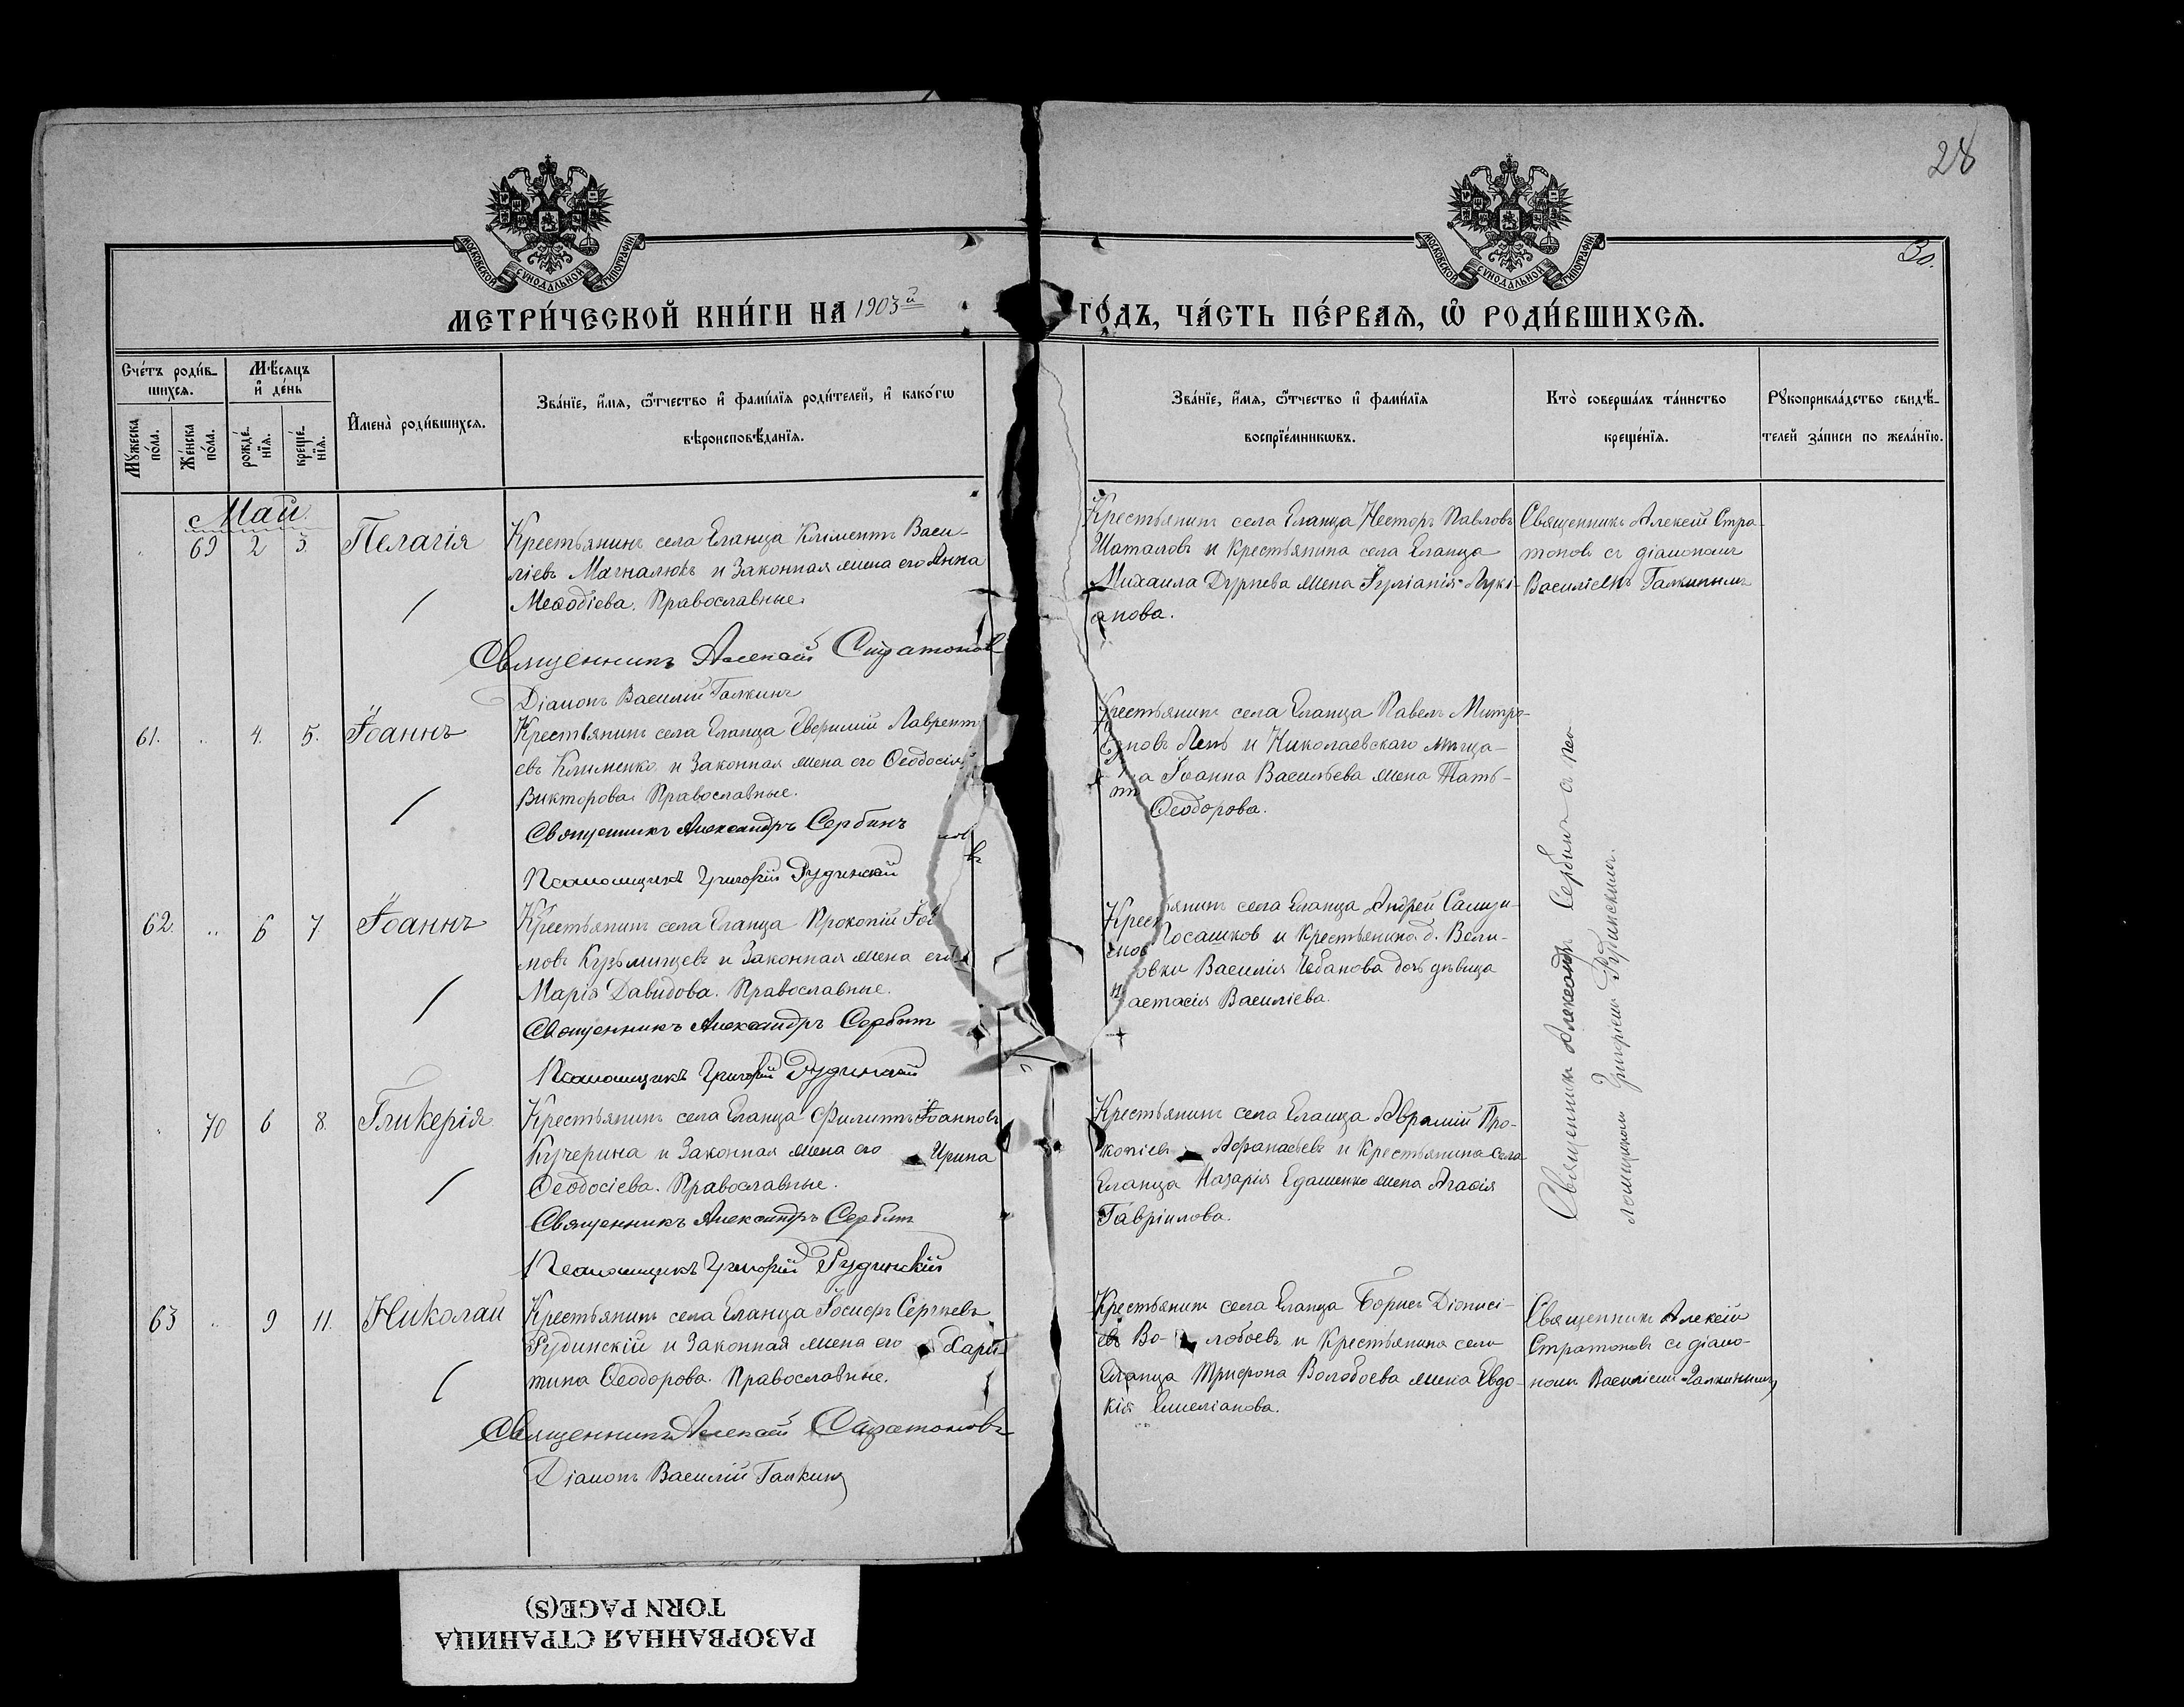 28
30.
МОСКОВСКОЙ СѴНОДАЛЬНОЙ ТИПОГРАФІИ
МОСКОВСКОЙ СѴНОДАЛЬНОЙ ТИПОГРАФІИ
МЕТРИ́ЧЕСКОЙ КНИ́ГИ НА 1903й ГО́ДЪ, ЧА́СТЬ ПЕ́РВАѦ, Ѡ҆ РОДИ́ВШИХСѦ.
Сче́тъ роди́в-
шихсѧ.
Мꙋ́жеска по́ла.
Же́нска по́ла.
Мѣ́сѧцъ
и҆ де́нь
рожде́-нїѧ.
креще́-нїѧ.
И҆мена̀ роди́вшихсѧ.
Зва́нїе, и҆́мѧ, ѻ҆́тчество и҆ фами́лїѧ роди́телей, и҆ како́гѡ
вѣроисповѣ́данїѧ.
Зва́нїе, и҆́мѧ, ѻ҆́тчество и҆ фами́лїѧ
воспрїе́мникѡвъ.
Кто̀ соверша́лъ та́инство
креще́нїѧ.
Рꙋкоприкла́дство свидѣ́-
телей за́писи по жела́нїю.
Май.
69 2 3. Пелагія
Крестьянинъ села Еланца Климентъ Васи-
ліевъ и Законная жена его Анна
Меѳодіева. Православные.
Священникъ Алексій Стратоновъ
Діаконъ Василій Галкинъ
Крестьянинъ села Еланца Несторъ Павловъ
Шаталовъ и Крестьянина села Еланца
Михаила Дурнева жена Іуліанія Лукі-
анова.
Священникъ Алексій Стра-
тоновъ съ діакономъ
Василіемъ Галкинымъ
61. 4. 5. Іоаннъ
Крестьянинъ села Еланца Евѳимій Лаврент
евъ Клименко и Законная жена его Ѳеодосія
Викторова. Православные.
Священникъ Александръ Сербинъ
Псаломщикъ Григорій Рудинскій
Крестьянинъ села Еланца Павелъ Митро-
и Николаевскаго мѣща-
Іоанна Васильева жена Тать-
Ѳеодорова.
Священникъ Александръ Сербинъ съ пса-
ломщикомъ Григоріемъ Рудинскимъ.
62. 6 7 Іоаннъ
Крестьянинъ села Еланца Прокопій Іоа
новъ Кузьминцевъ и Законная жена его
Марія Давидова. Православные.
Священникъ Александръ Сербинъ
Псаломщикъ Григорій Рудинскій
Крестьянинъ села Еланца Андрей
и Крестьянина д. Вели-
Василія Чебанова дочь дѣвица
астасія Василіева.
70 6 8. Гликерія
Крестьянинъ села Еланца Филиппъ Іоанновъ
Кучерина и Законная жена его Ирина
Ѳеодосіева. Православные.
Священникъ Александръ Сербинъ
Псаломщикъ Григорій Рудинскій
Крестьянинъ села Еланца Аврамій Про-
копіевъ Аѳанасьевъ и Крестьянина села
Еланца Назарія Едашенко жена Агаѳія
Гавріилова.
63 9 11. Николай
Крестьянинъ села Еланца Іосифъ Сергѣевъ
Рудинскій и Законная жена его Хари-
тина Ѳеодорова. Православные.
Священникъ Алексій Стратоновъ
Діаконъ Василій Галкинъ
Крестьянинъ села Еланца Борисъ Діонисі-
евъ Во-лобоевъ и Крестьянина села
Еланца Трифона Волобоева жена Евдо-
кія Емеліанова.
Священникъ Алексій
Стратоновъ съ діако-
номъ Василіемъ Галкинымъ
РАЗОРВАННАЯ СТРАНИЦА
TORN PAGE(S)